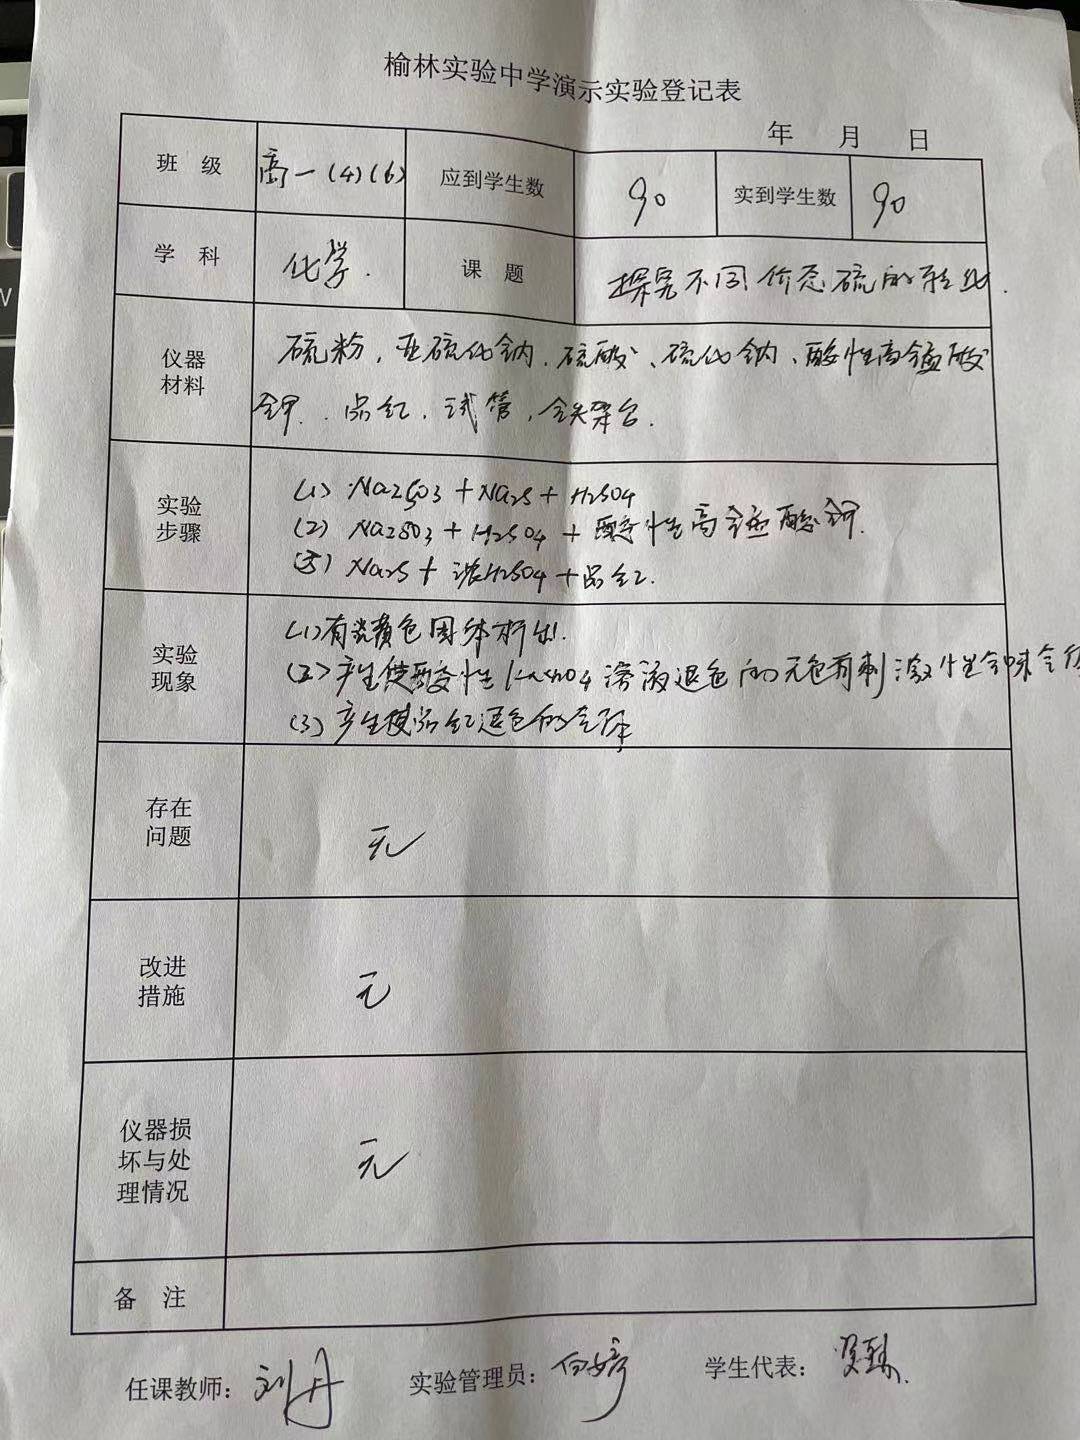 榆林实验中学演示实验登记表
年 月 日
班 级 高一(4)(6) 应到学生数 90 实到学生数 90
学 科 化学. 课 题 探究不同价态硫的转化.
仪器
材料
硫粉，亚硫化钠、硫酸、硫化钠、酸性高锰酸
钾、品红，试管，铁架台.
实验
步骤
(1) Na2SO3 + Na2S + H2SO4
(2) Na2SO3 + H2SO4 + 酸性高锰酸钾.
(3) Na2S + 浓H2SO4 + 品红.
实验
现象
(1)有淡黄色固体析出.
(2)产生使酸性KMnO4溶液退色的无色有刺激性气味气体
(3)产生使品红退色的气体
存在
问题
无
改进
措施
无
仪器损
坏与处
理情况
无
备 注
任课教师：刘丹 实验管理员：向婷 学生代表：